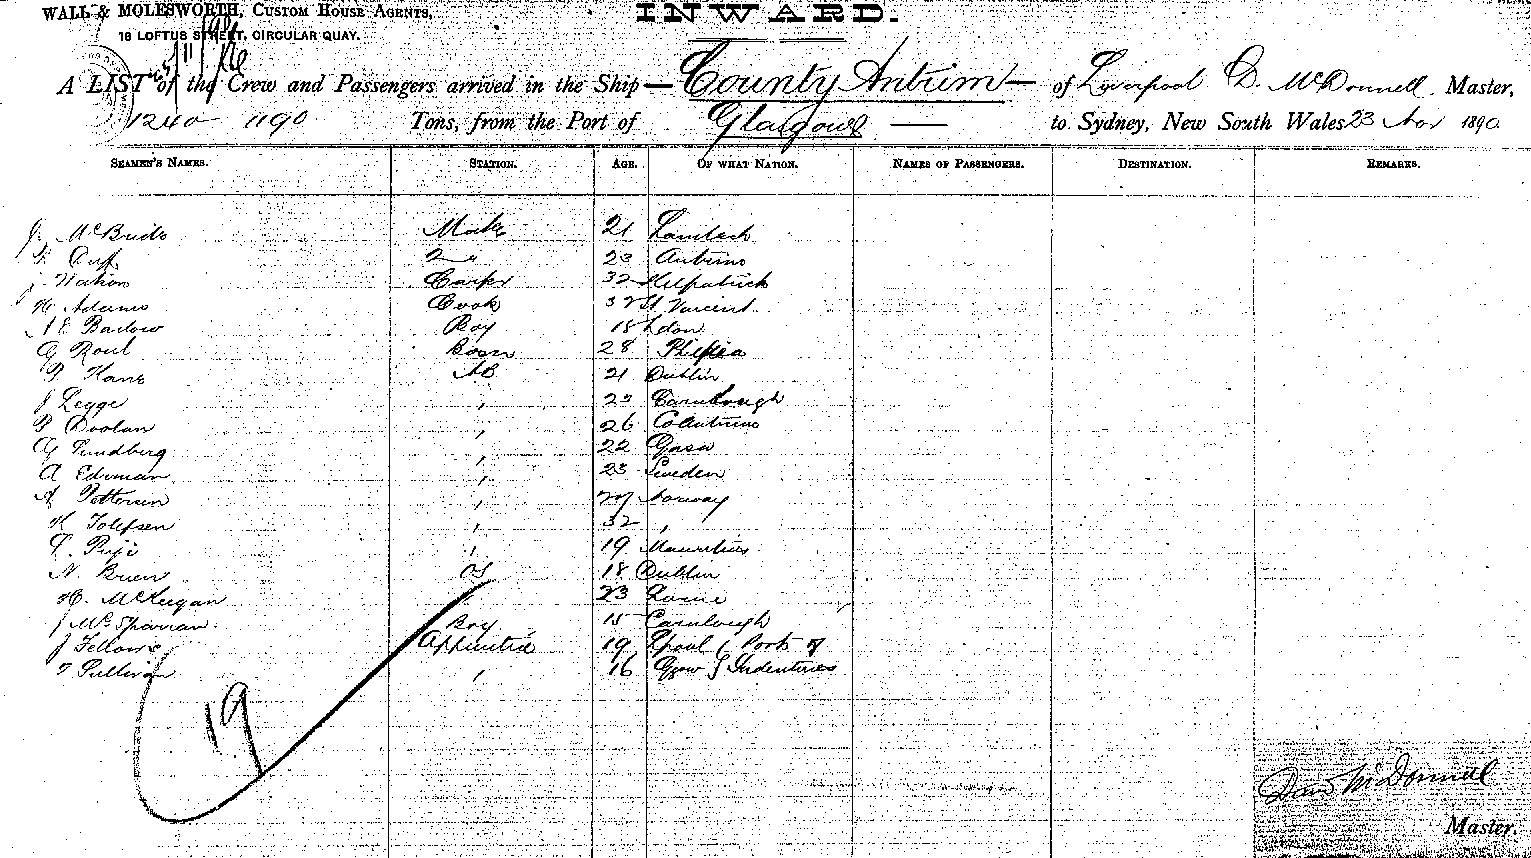 WALL & MOLESWORTH, CUSTOM HOUSE AGENTS,
INWARD.
18 LOFTUS STREET, CIRCULAR QUAY.
A LIST of the Crew and Passengers arrived in the Ship — County Antrim — of Liverpool D. McDonnell. Master,
1240 1190 Tons, from the Port of Glasgow — to Sydney, New South Wales 23 Nov 1890.
SEAMEN'S NAMES. STATION. AGE. OF WHAT NATION. NAMES OF PASSENGERS. DESTINATION. REMARKS.
J. McBride Mate 21
2 23 Antrim
Nation Carpr 32 Kilpatrick
H Adams Cook 37 St Vincent
E Barlow Boy 18 Ldon
G Bosn 28
P Kane AB 21 Dublin
J Legge , Carnlough
P Doolan , 26 Co Antrim
G Lundberg , 22
A Edvman , 23 Sweden
A Pettersen , Norway
H Tolefsen , 32 ,
, 19 Mauritius
N. Brien OS 18 Dublin
H. McKeegan 23 Larne
J McSparran. Boy 15 Carnlough
J Fellows Apprentice 19 Lpool Ports of
T Sullivan , 16 Ggow Indentures
19
McDonnell
Master.